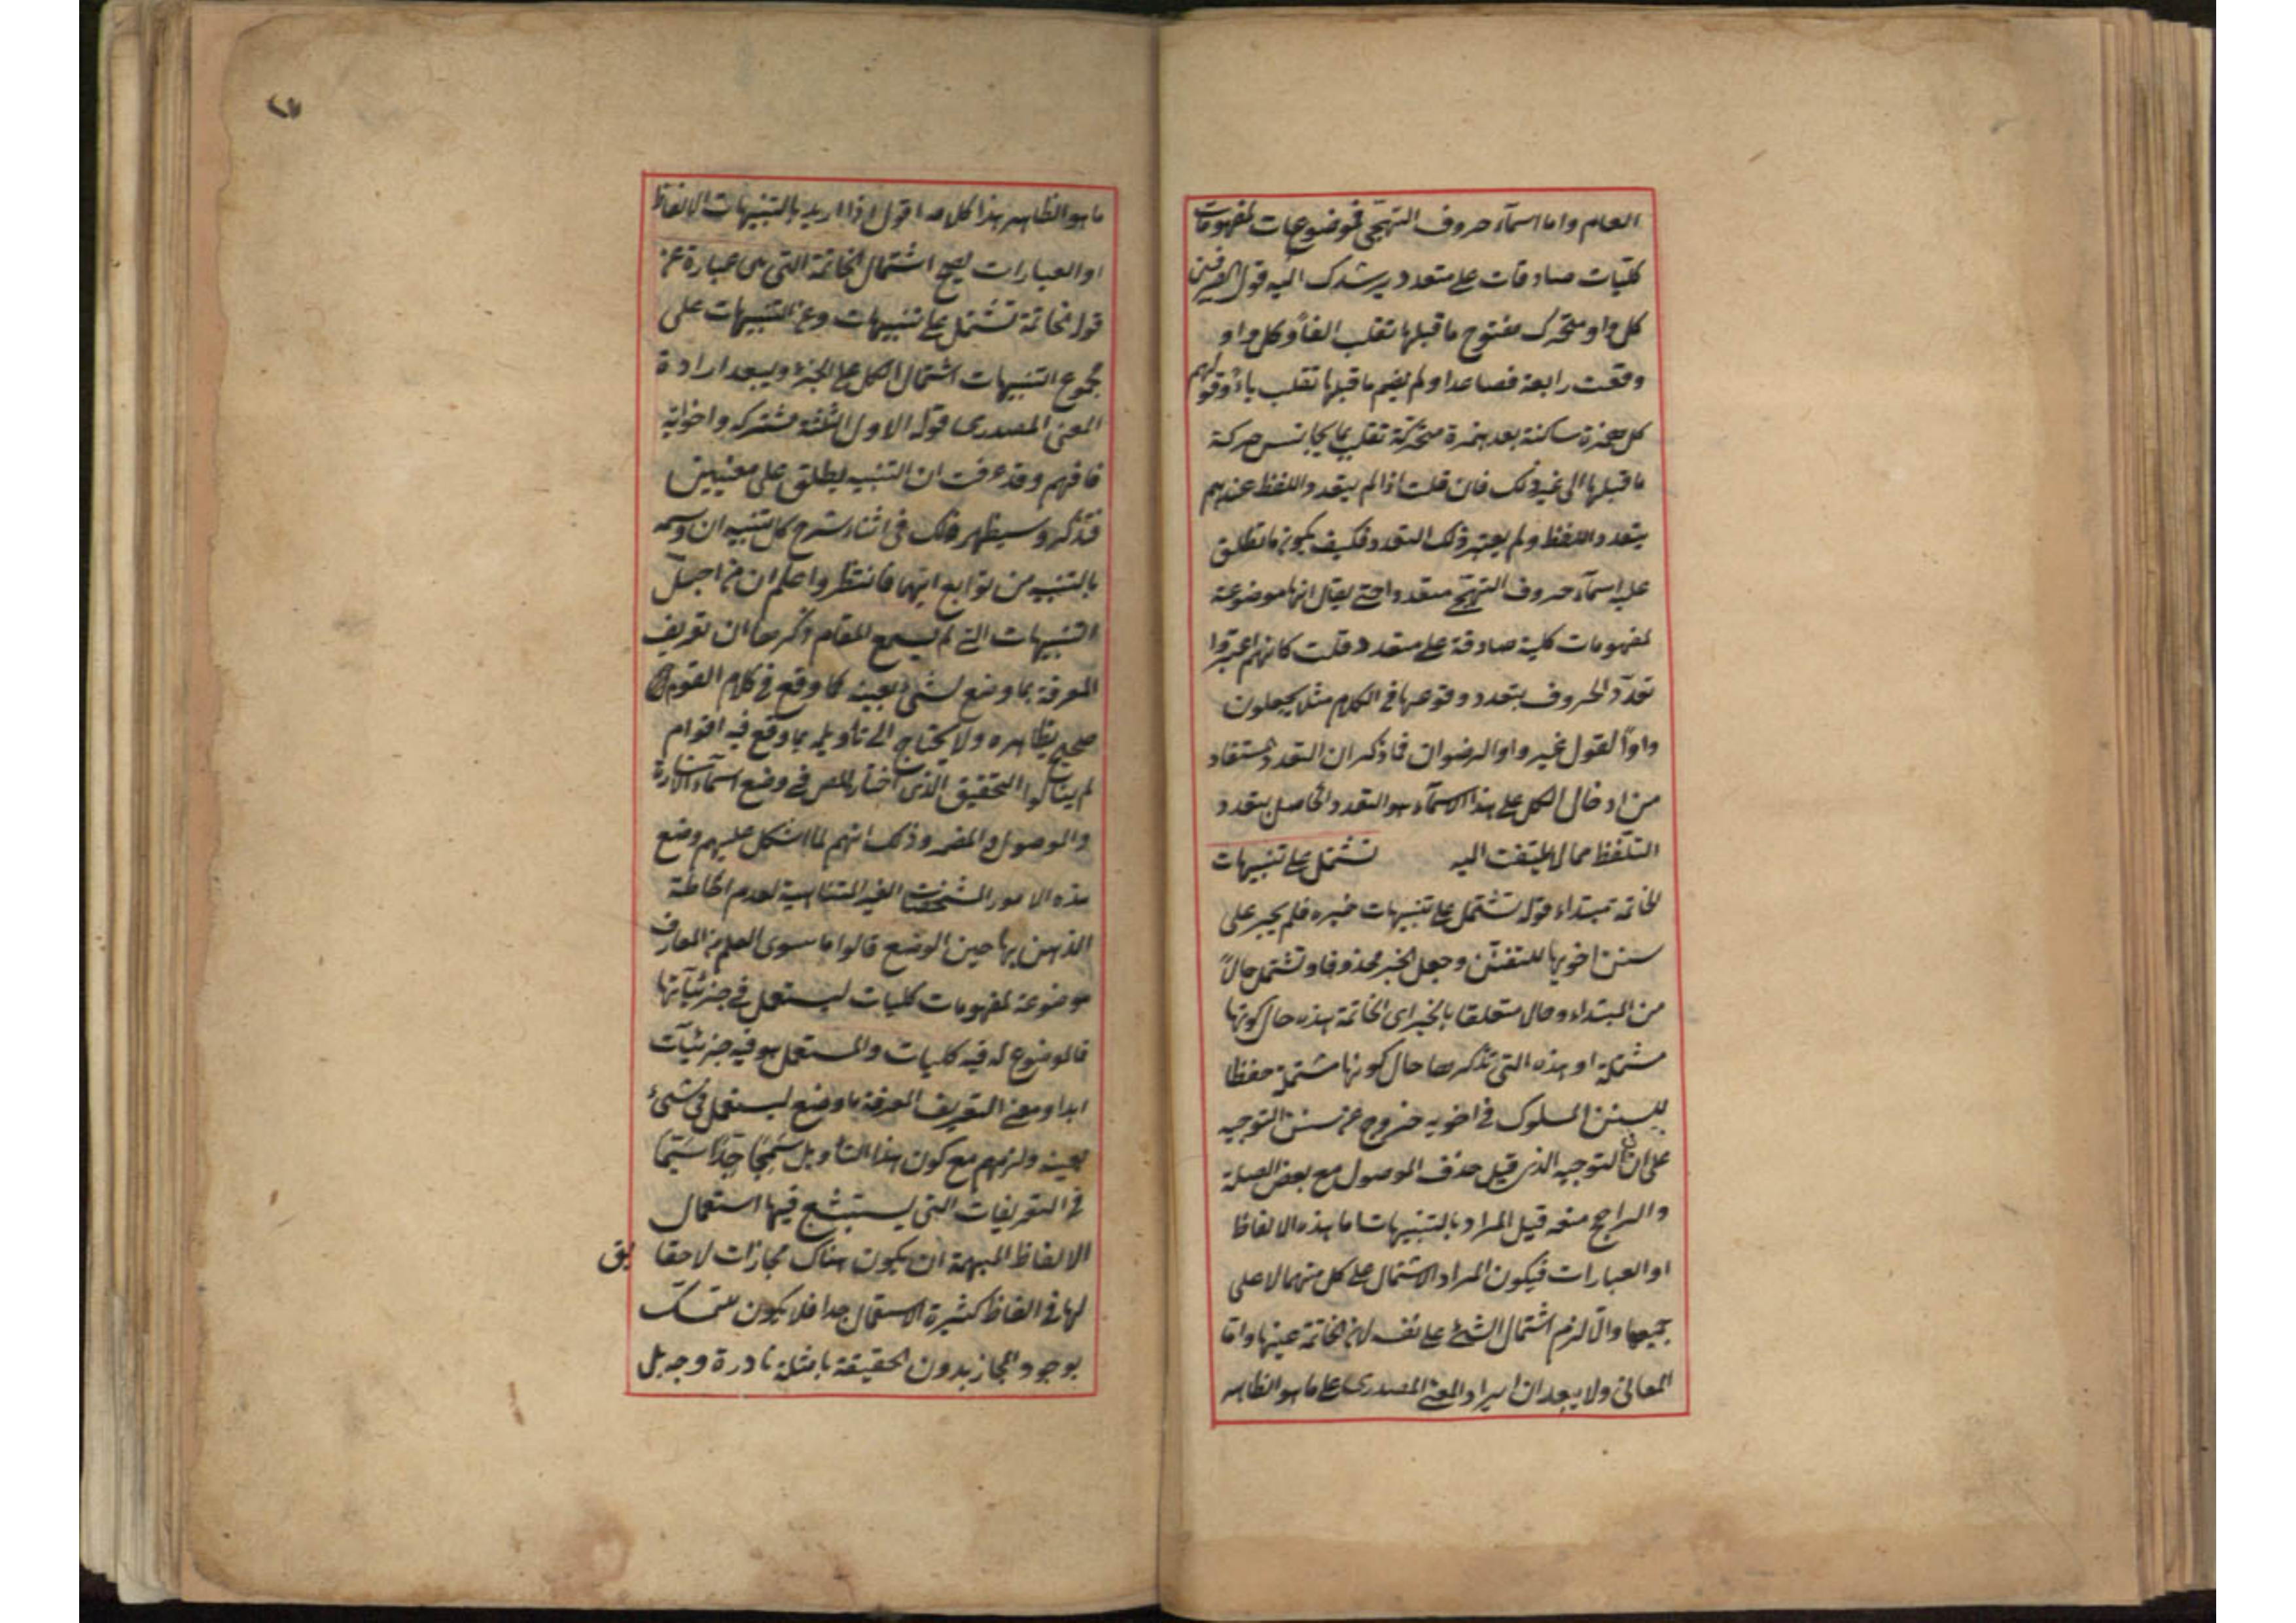 العام واما اسمآء حروف التهجّى فموضوعات لمفهومات
كليّات صادقات على متعدد يرشدك اليه قول الصرفيين
كل واو متحرك مفتوح ما قبلها تقلب الفاً وكل واو
وقعت رابعة فصاعدا ولم يضم ما قبلها تقلب ياءً وقولهم
كل همزة ساكنة بعد همزة متحركة تقلب بما يجانس حركة
ما قبلها الى غير ذلك فان قلت اذا لم يتعدد اللفظ عندهم
بتعدد اللفظ ولم يعتبر ذلك التعدد فكيف يكون ما تطلق
عليه اسمآء حروف التهجّى متعددا حتى يقال انها موضوعة
لمفهومات كلية صادقة على متعدد قلت كانهم اعتبروا
تعدّد الحروف بتعدد وقوعها فى الكلام مثلا يجعلون
واو القول غير واو الرضوان فما ذكر ان التعدد المستفاد
من ادخال الكل على هذا الاسمآء هو التعدد الحاصل بتعدد
التلفظ مما لا يلتفت اليه تشتمل على تنبيهات
الخاتمة مبتداء قوله تشتمل على تنبيهات خبره فلم يجر على
سنن اخويها للتفنّن وجعل الخبر محذوفا وتشتمل حالاً
من المبتداء وحالا متعلقا بالخبر اى الخاتمة هذه حال كونها
مشتملة او هذه التى نذكرها حال كونها مشتملة حفظا
لسنن السلوك فى اخويه خروج عن سنن التوجيه
على ان التوجيه الذى قيل حذف الموصول مع بعض الصلة
والراجح منعه قيل المراد بالتنبيهات اما هذه الالفاظ
او العبارات فيكون المراد الاشتمال على كل منهما لا على
جميعها والّا لزم اشتمال الشئ على نفسه لان الخاتمة عينها واما
المعانى ولا يبعد ان يراد المعنى المصدرى على ما هو الظاهر
ما هو الظاهر هذا كلامه اقول اذا اريد بالتنبيهات الالفاظ
او العبارات يصح اشتمال الخاتمة التى هى عبارة عن
قوله الخاتمة تشتمل على تنبيهات وعن التنبيهات على
مجموع التنبيهات اشتمال الكل على الجزء ويبعد ارادة
المعنى المصدرى قوله الاول الثلثة مشتركة واخواته
فافهم وقد عرفت ان التنبيه يطلق على معنيين
فتذكر وسيظهر ذلك فى اثناء شرح كل تنبيه ان وسمه
بالتنبيه من توابع ايهما فانتظر واعلم ان من اجلّ
التنبيهات التى لم يسع المقام ذكرها ان تعريف
المعرفة بما وضع لشئ بعينه كما وقع فى كلام القوم
صحيح بظاهره ولا يحتاج الى تاويله بما وقع فيه اقوام
لم ينالوا التحقيق الذى اختاره المص فى وضع اسمآء الاشارة
والموصول والمضمر وذلك انهم لما اشكل عليهم وضع
هذه الامور المشخصات الغير المتناهية لعدم احاطة
الذهن بها حين الوضع قالوا ما سوى العلم من المعارف
موضوعة لمفهومات كليات ليستعمل فى جزئياتها
فالموضوع له فيه كليات والمستعمل هو فيه جزئيات
ابدا ومعنى التعريف المعرفة ما وضع ليستعمل فى شئ
بعينه ولزمهم مع كون هذا التاويل سمجًا جدًا سيّما
فى التعريفات التى يستبشع فيها استعمال
الالفاظ المبهمة ان يكون هناك مجازات لا حقايق
لها فى الفاظ كثيرة الاستعمال جدا فلا يكون للتمسك
بوجود المجاز بدون الحقيقة بامثلة نادرة وجه بل